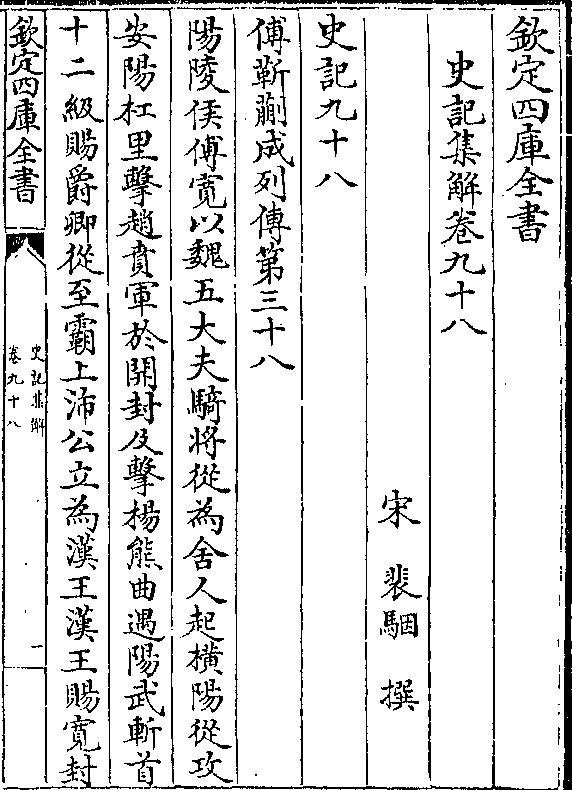 欽定四庫全書
史記集解卷九十八
宋 裴駰 撰
史記九十八
傅靳蒯成列傳第三十八
陽陵侯傅寛以魏五大夫騎將從為舍人起横陽從攻
安陽杠里擊趙賁軍於開封及擊楊熊曲遇陽武斬首
十二級賜爵卿從至霸上沛公立為漢王漢王賜寛封
欽定四庫全書
史記集解
卷九十八
一